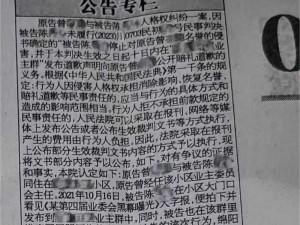 公告专栏
原告曾 与被告陈 人格权纠纷一案，因
被告陈 未履行(2020)川0703 民 号民事判决
书确定的"被告陈 停止对原告曾 名誉的侵
害，并于本判决生效之日起十日内在" 业
主群"发布道歉声明向原告曾 公开赔礼道歉的
义务，根据《中华人民共和国民法典》第一千条的规
定：行为人因侵害人格权承担消除影响、恢复名誉、
赔礼道歉等民事责任的，应当与行为的具体方式和
造成的影响范围相当。行为人拒不承担前款规定的
民事责任的，人民法院可以采取在报刊、网络等媒
体上发布公告或者公布生效裁判文书等方式执行，
产生的费用由行为人负担。因此，法院采取在报刊
上公布部分生效裁判文书内容的方式予以执行，现
将文书部分内容予以公布，如下，对有争议的证据
和事实，本院认定如下：原告曾 与被告陈
同住在 小区，原告曾经任该小区业主委员
会主任，2021年10月16日，被告陈 在小区大门口
看见《某第四届业委会黑幕曝光》大字报，便拍下来
发布到 业主群中，同时，被告也在该群里